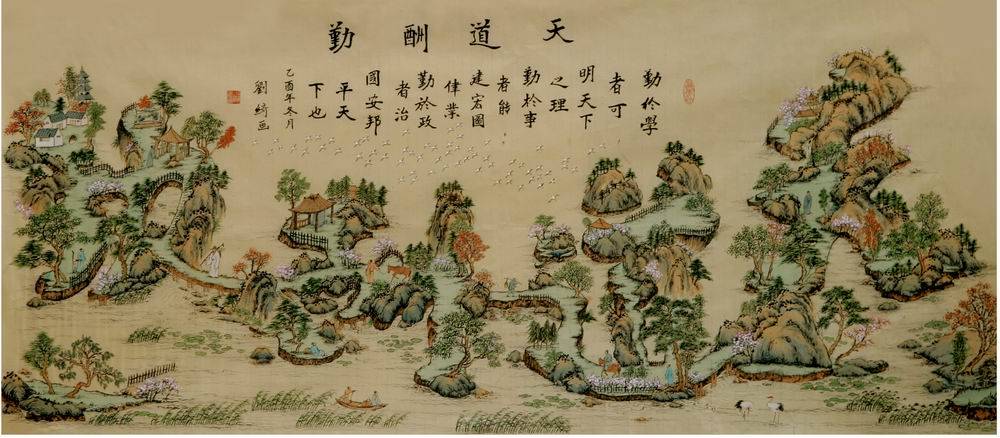 天道酬勤
勤於學
者可
明天下
之理
勤於事
者能
建宏圖
偉業
勤於政
者治
國安邦
平天
下也
乙酉年冬月
劉綺画